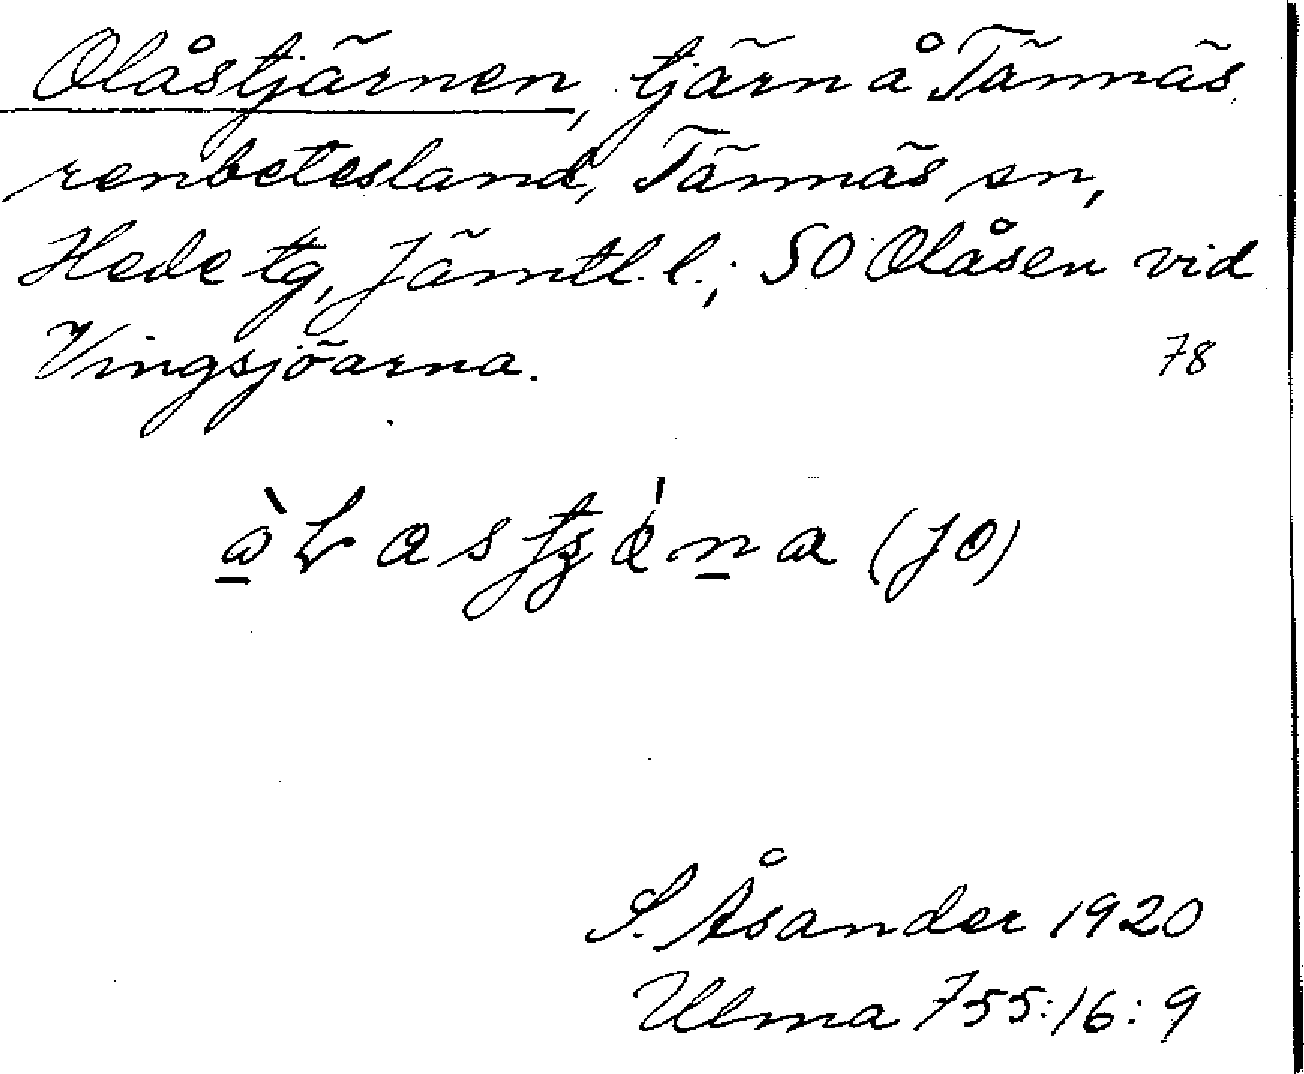 Olåstjärnen, tjärn å Tännäs
renbetesland, Tännäs sn,
Hede tg, Jämtl. l.; SO Olåsen vid
Vingsjöarna. 78
(JO)
S. Åsander 1920
Ulma 755:16:9